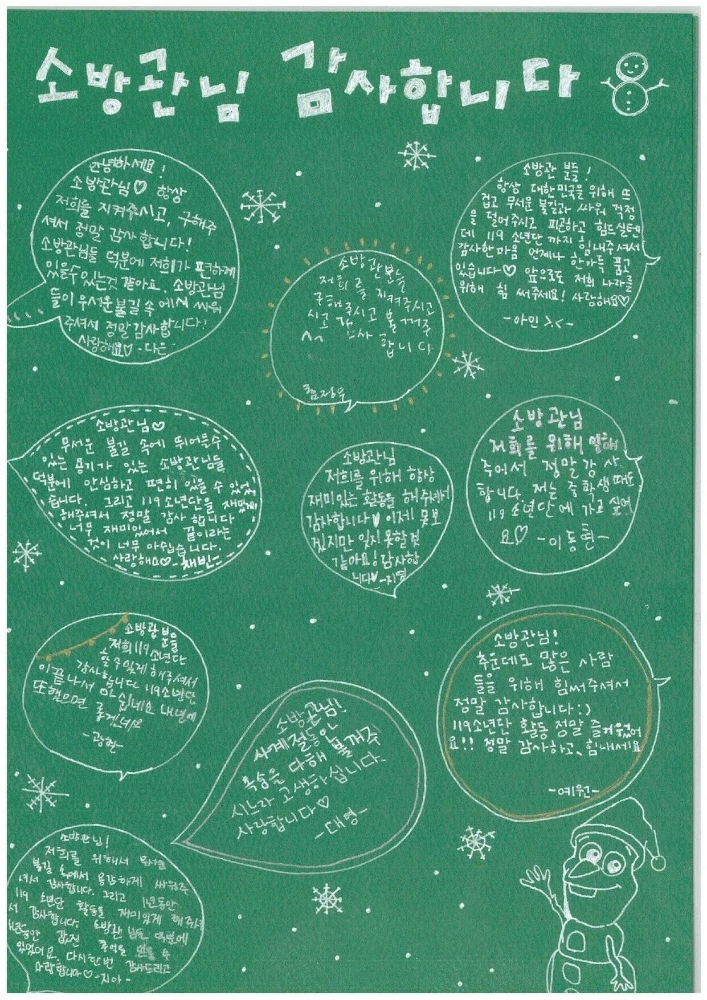 소방관님 감사합니다
안녕하세요!
소방관님♡ 항상
저희를 지켜주시고, 구해주
셔서 정말 감사합니다!
소방관님들 덕분에 저희가 편하게
있을수있는것 같아요. 소방관님
들이 무서운불길 속에서 싸워
주셔서 정말감사합니다!
사랑해요♡ -다은-
소방관 분들!
항상 대한민국을 위해 뜨
겁고 무서운 불길과 싸워 걱정
을 덜어주시고 피곤하고 힘드실텐
데 119 소년단 까지 힘내주셔서
감사한마음 언제나 한가득 품고
있습니다♡ 앞으로도 저희 나라를
위해 힘 써주세요! 사랑해요♡
-아민 >.<-
소방관분들
저희를 지켜주시고
구해주시고 불 꺼주
시고 감사 합니다
^^
소방관님♡
무서운 불길 속에 뛰어들수
있는 용기가 있는 소방관님들
덕분에 안심하고 편히 있을 수 있었
습니다. 그리고 119소년단을 재밌게
해주셔서 정말 감사 합니다
너무 재미있어서 끝이라는
것이 너무 아쉽습니다.
사랑해요♡ -채빈-
소방관님
저희를 위해 항상
재미있는 활동을 해주셔서
감사합니다♥ 이제 못보
겠지만 잊지 못할것
같아요! 감사합
니다♥
소방관님
저희를 위해 일해
주어서 정말감사
합니다. 저는 중학생 때도
119 소년단에 가고 싶어
요♡ -이동현-
소방관분들
저희 119소년단
할수있게 해주셔서
감사합니다. 119소년단
이끝나서 아쉽네요 내년에
또했으면 좋겠네요
-광현-
소방관님!
사계절동안
목숨을 다해 불꺼주
시느라 고생하십니다.
사랑합니다♡
-대영-
소방관님!
추운데도 많은 사람
들을 위해 힘써주셔서
정말 감사합니다:)
119소년단 활동 정말 즐거웠어
요!! 정말 감사하고, 힘내세요
-예원-
소방관님!
저희를 위해서 무서운
불길 속에서 용감하게 싸워주
셔서 감사합니다. 그리고 1년동안
119 소년단 활동을 재미있게 해주셔
서 감사합니다. 소방관 님들 덕분에
1년동안 값진 추억을 만들 수
있었어요. 다시한번 감사드리고
사랑합니다♡ -지아-